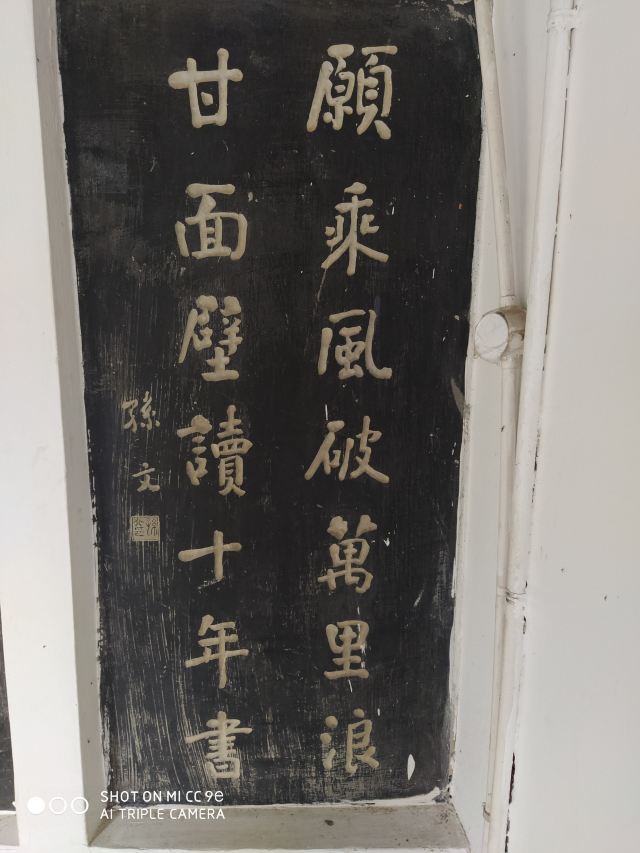 願乘風破萬里浪
甘面壁讀十年書
孫文
SHOT ON MI CC 9e
AI TRIPLE CAMERA